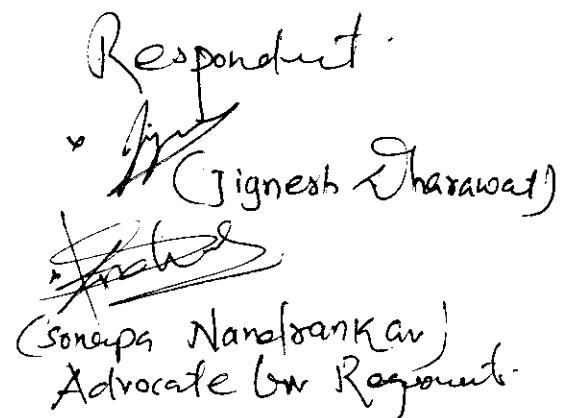 Respondent.
x
(Jignesh Dharawat)
x
(Sonapa Nandrankar)
Advocate for Respondent.